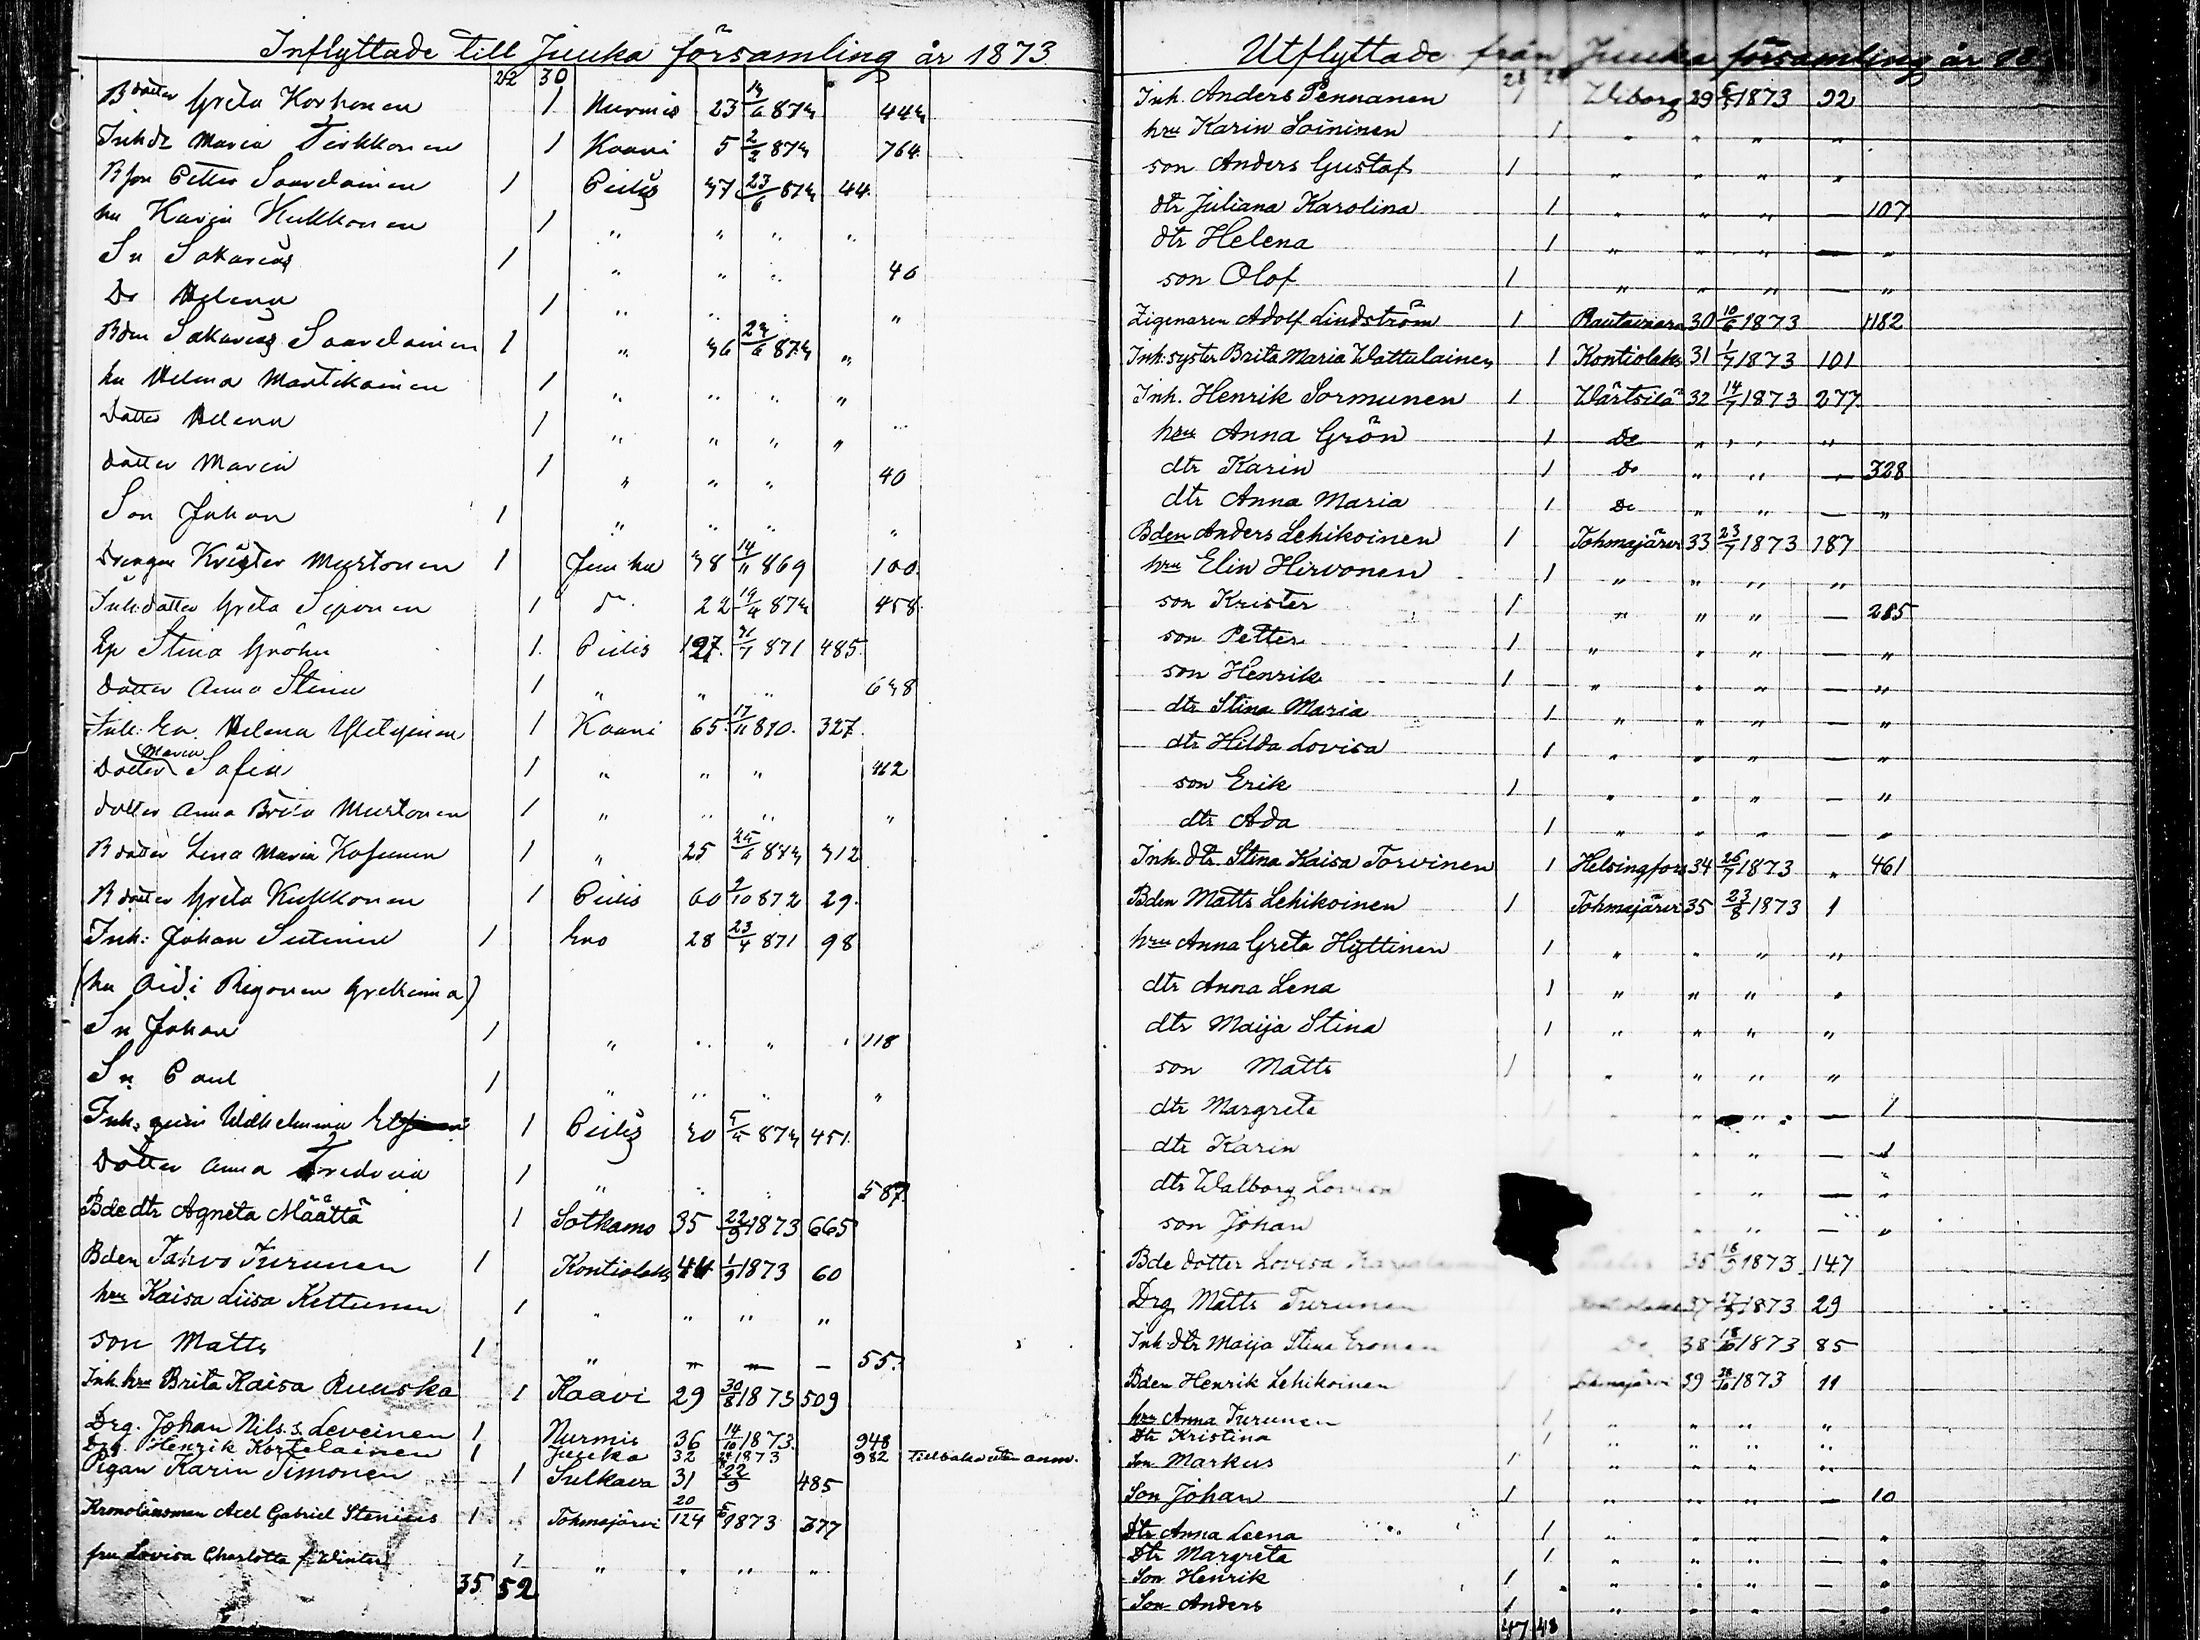 Inflyttade till Juuka församling år 1873
22 30
Bdotter Greta Korhonen 1 Nurmis 23 873 443
Inh dr Maria Tirkkonen 1 Kaavi 5 2/2 873 764
Bson Petter Saarelainen 1 Pielis 37 23/6 873 44
hu Karin Kukkonen 1 " " " "
Sn Sakarias 1 " " " 40
Dr Helena 1 " " " "
Bden Sakarias Saarelainen 1 " 36 23/6 873 "
hu Helena Martikainen 1 " " " "
dotter Helena 1 " " " "
dotter Maria 1 " " " 40
Son Johan 1 " " " "
Drengen Krister Murtonen 1 Juuka 38 14/11 869 100
Inh: dotter Greta Siponen 1 dr 22 19/4 873 458
Ep Stina Gröhn 1 Pielis 127 871 485
dotter Anna Stina 1 " " " 638
Inh: Helena 1 Kaavi 65 17/11 870 327
dotter Maria Sofia 1 " " " 462
dotter Anna Brita Murtonen 1 " " " "
B dotter Lena Maria 1 " 25 873 312
B dotter Greta Kukkonen 1 Pielis 60 2/10 872 29
Inh: Johan Sutinen 1 Eno 28 23/4 871 98
(hu Grekinna)
Sn Johan 1 " " " " 118
Sn Paul 1 " " " "
Inh: Wilhelmina 1 Pielis 30 873 451
Dotter Anna Fredrika 1 " " " 587
Bde dtr Agneta Määttä 1 Sotkamo 35 22/9 1873 665
Bden Tahvo Turunen 1 Kontiolaks 44 1/9 1873 60
hru Kaisa Liisa Kettunen 1 " " " "
son Matts 1 " " — — 55
Inh. hru Brita Kaisa Ruuska 1 Kaavi 29 30/8 1873 509
Drg. Johan Nils. s. Leveinen 1 Nurmis 36 14/10 1873 948
Drg. Henrik Kortelainen 1 Juuka 32 1873 982 Tillbaka utan anm.
Pigan Karin Timonen 1 Sulkava 31 22/9 485
Kronolänsman Axel Gabriel Stenius 1 Tohmajärvi 20/124 5/6 1873 377
fru Lovisa Charlotta f. Winter 1 " " " "
35 52
Utflyttade från Juuka församling år 18
Inh. Anders Pennanen 1 Wiborg 29 1873 92
hru Karin Soininen 1 " " " "
son Anders Gustaf 1 " " " "
dtr Juliana Karolina 1 " " " — 107
dtr Helena 1 " " " — "
son Olof 1 " " " — "
Zigenaren Adolf Lindström 1 Rautavaara 30 10/6 1873 1182
Inh: syster Brita Maria Wattulainen 1 Kontiolaks 31 1/7 1873 101
Inh. Henrik Sormunen 1 Wärtsilä 32 14/7 1873 277
hru Anna Grön 1 Do " " "
dtr Karin 1 Do " " — 328
dtr Anna Maria 1 Do " " — "
Bden Anders Lehikoinen 1 Tohmajärvi 33 23/7 1873 187
hru Elin Hirvonen 1 " " " "
son Krister 1 " " " — 285
son Petter 1 " " " — "
son Henrik 1 " " " — "
dtr Stina Maria 1 " " " — "
dtr Hilda Lovisa 1 " " " — "
son Erik 1 " " " — "
dtr Ada 1 " " " — "
Inh. dtr. Stina Kaisa Torvinen 1 Helsingfors 34 26/7 1873 " 461
Bden Matts Lehikoinen 1 Tohmajärvi 35 23/8 1873 1
hru Anna Greta Hyttinen 1 " " " "
dtr Anna Lena 1 " " " "
dtr Maija Stina 1 " " " "
son Matts 1 " " " "
dtr Margreta " " — 1
dtr Karin " " — 1
dtr Walborg Lovisa " " — "
son Johan " " — "
Bde dotter Lovisa 36 18/9 1873 147
Drg Matts Turunen 37 1873 29
Inh dtr Maija Stina Eronen Do 38 18/10 1873 85
Bden Henrik Lehikoinen 39 1873 11
hru Anna Turunen 1 " " "
Dtr Kristina 1 " " " "
Son Markus 1 " " " "
Son Johan 1 " " " — 10
Dtr Anna Leena 1 " " " — "
Dtr Margreta 1 " " " — "
Son Henrik 1 " " " — "
Son Anders 1 " " " — "
47 48